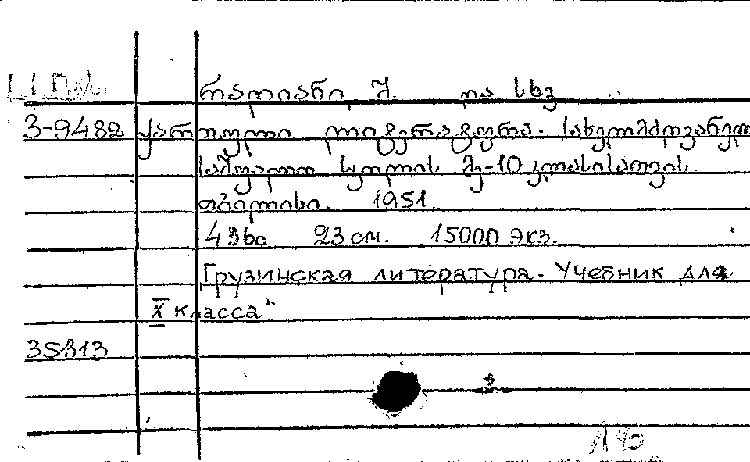 რადიანი, შ. და სხვ.
3-9482 ქართული ლიტერატურა. სახელმძღვანელო
საშუალო სკოლის მე-10 კლასისათვის
თბილისი. 1951
23 см. 15000 экз.
Грузинская литература. Учебник для
X класса"
35313